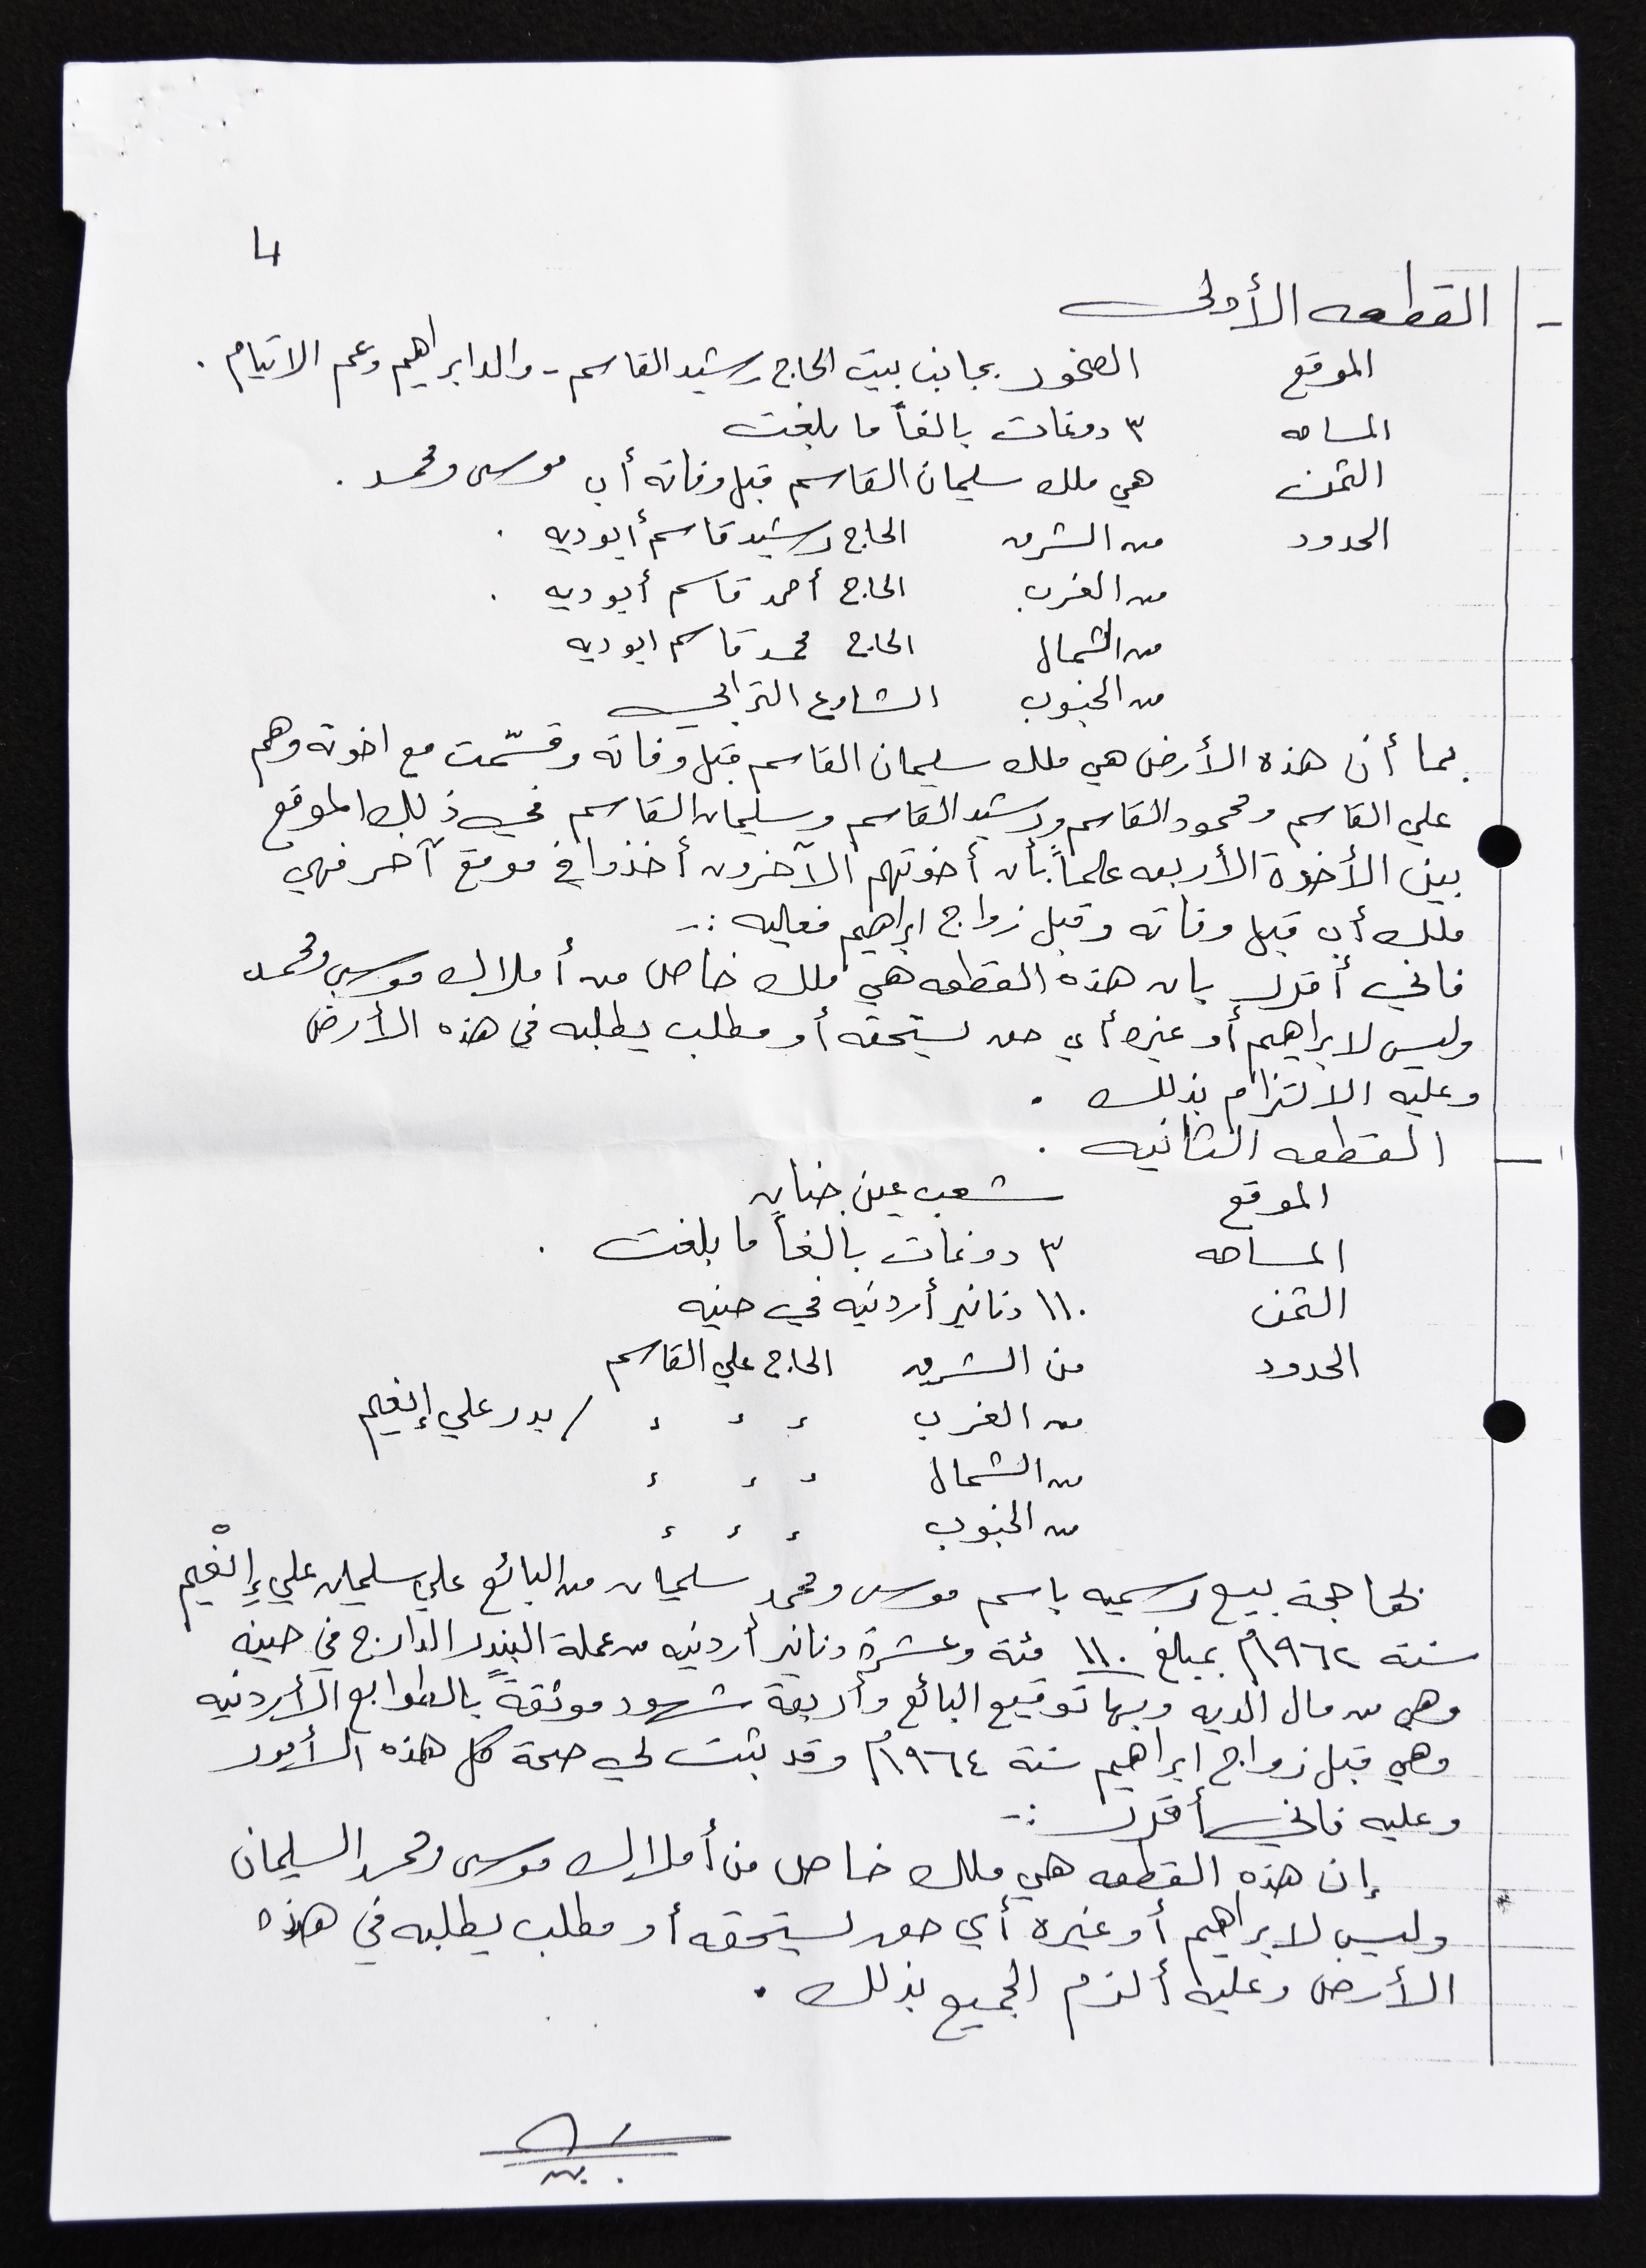 4
- القطعه الأولى
الموقع الصخور بجانب بيت الحاج رشيد القاسم - والد ابراهيم وعم الايتام .
المساحه ٣ دونمات بالغاً ما بلغت
الثمن هي ملك سليمان القاسم قبل وفاته أب موسى ومحمد .
الحدود من الشرق الحاج رشيد قاسم أبوديه .
من الغرب الحاج أحمد قاسم أبوديه .
من الشمال الحاج محمد قاسم ابوديه
من الجنوب الشارع الترابي
بما أن هذه الأرض هي ملك سليمان القاسم قبل وفاته وقسّمت مع اخوته وهم
علي القاسم ومحمود القاسم ورشيد القاسم وسليمان القاسم في ذلك الموقع
بين الأخوة الأربعه علماً بأن أخوتهم الآخرون أخذوا في موقع آخر فهي
ملك أب قبل وفاته وقبل زواج ابراهيم فعليه :-
فاني أقرر بان هذه القطعه هي ملك خاص من أملاك موسى ومحمد
وليس لابراهيم أو غيره أي حق يستحقه أو مطلب يطلبه في هذه الأرض
وعليه الالتزام بذلك .
- القطعه الثانيه .
الموقع شعب عين جنان
المساحه ٣ دونمات بالغاً ما بلغت .
الثمن ١١٠ دنانير أردنيه في حينه
الحدود من الشرق الحاج علي القاسم
من الغرب ء ء ء / بدر علي إنعيم
من الشمال ء ء ء
من الجنوب ء ء ء
بيع رسميه باسم موسى ومحمد سليمان من البائع علي سليمان علي إنْعيم
سنة ١٩٦٢م بمبلغ ١١٠ مئة وعشرة دنانير أردنيه من عملة البندر الدارج في حينه
وهي من مال الديه وبها توقيع البائع وأربعة شهود موثقةً بالطوابع الأردنيه
وهي قبل زواج ابراهيم سنة ١٩٦٤م وقد ثبت لي صحة كل هذه الأمور
وعليه فاني أقرر :-
إن هذه القطعه هي ملك خاص من أملاك موسى ومحمد السليمان
وليس لابراهيم أو غيره أي حق يستحقه أو مطلب يطلبه في هذه
الأرض وعليه ألزم الجميع بذلك .